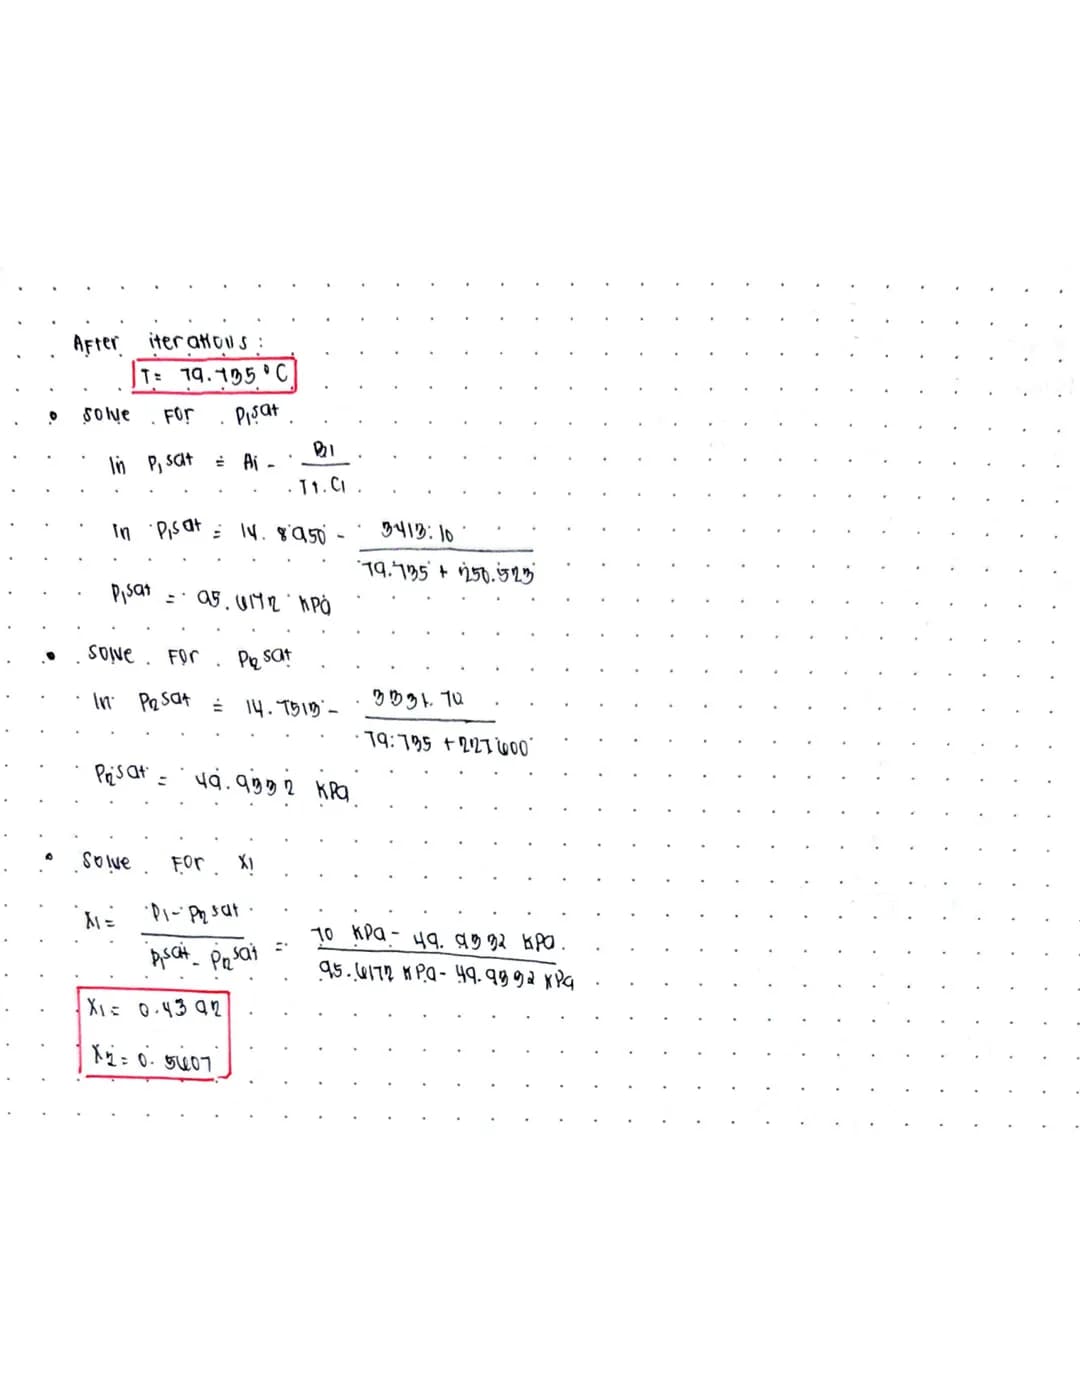 After iterations :
T = 79.735 °C
• solve for P1sat
ln P1sat = Ai - B1 / T1.C1
ln P1sat = 14.8950 - 3413.10 / 79.735 + 250.523
P1sat = 95.6172 kPa
• solve for P2sat
ln P2sat = 14.7513 - 3331.70 / 79.735 + 227.600
P2sat = 49.9332 kPa
• Solve for X1
X1 = P1 - P2sat / P1sat - P2sat = 70 kPa - 49.9332 kPa / 95.6172 kPa - 49.9332 kPa
X1 = 0.4392
X2 = 0.5607